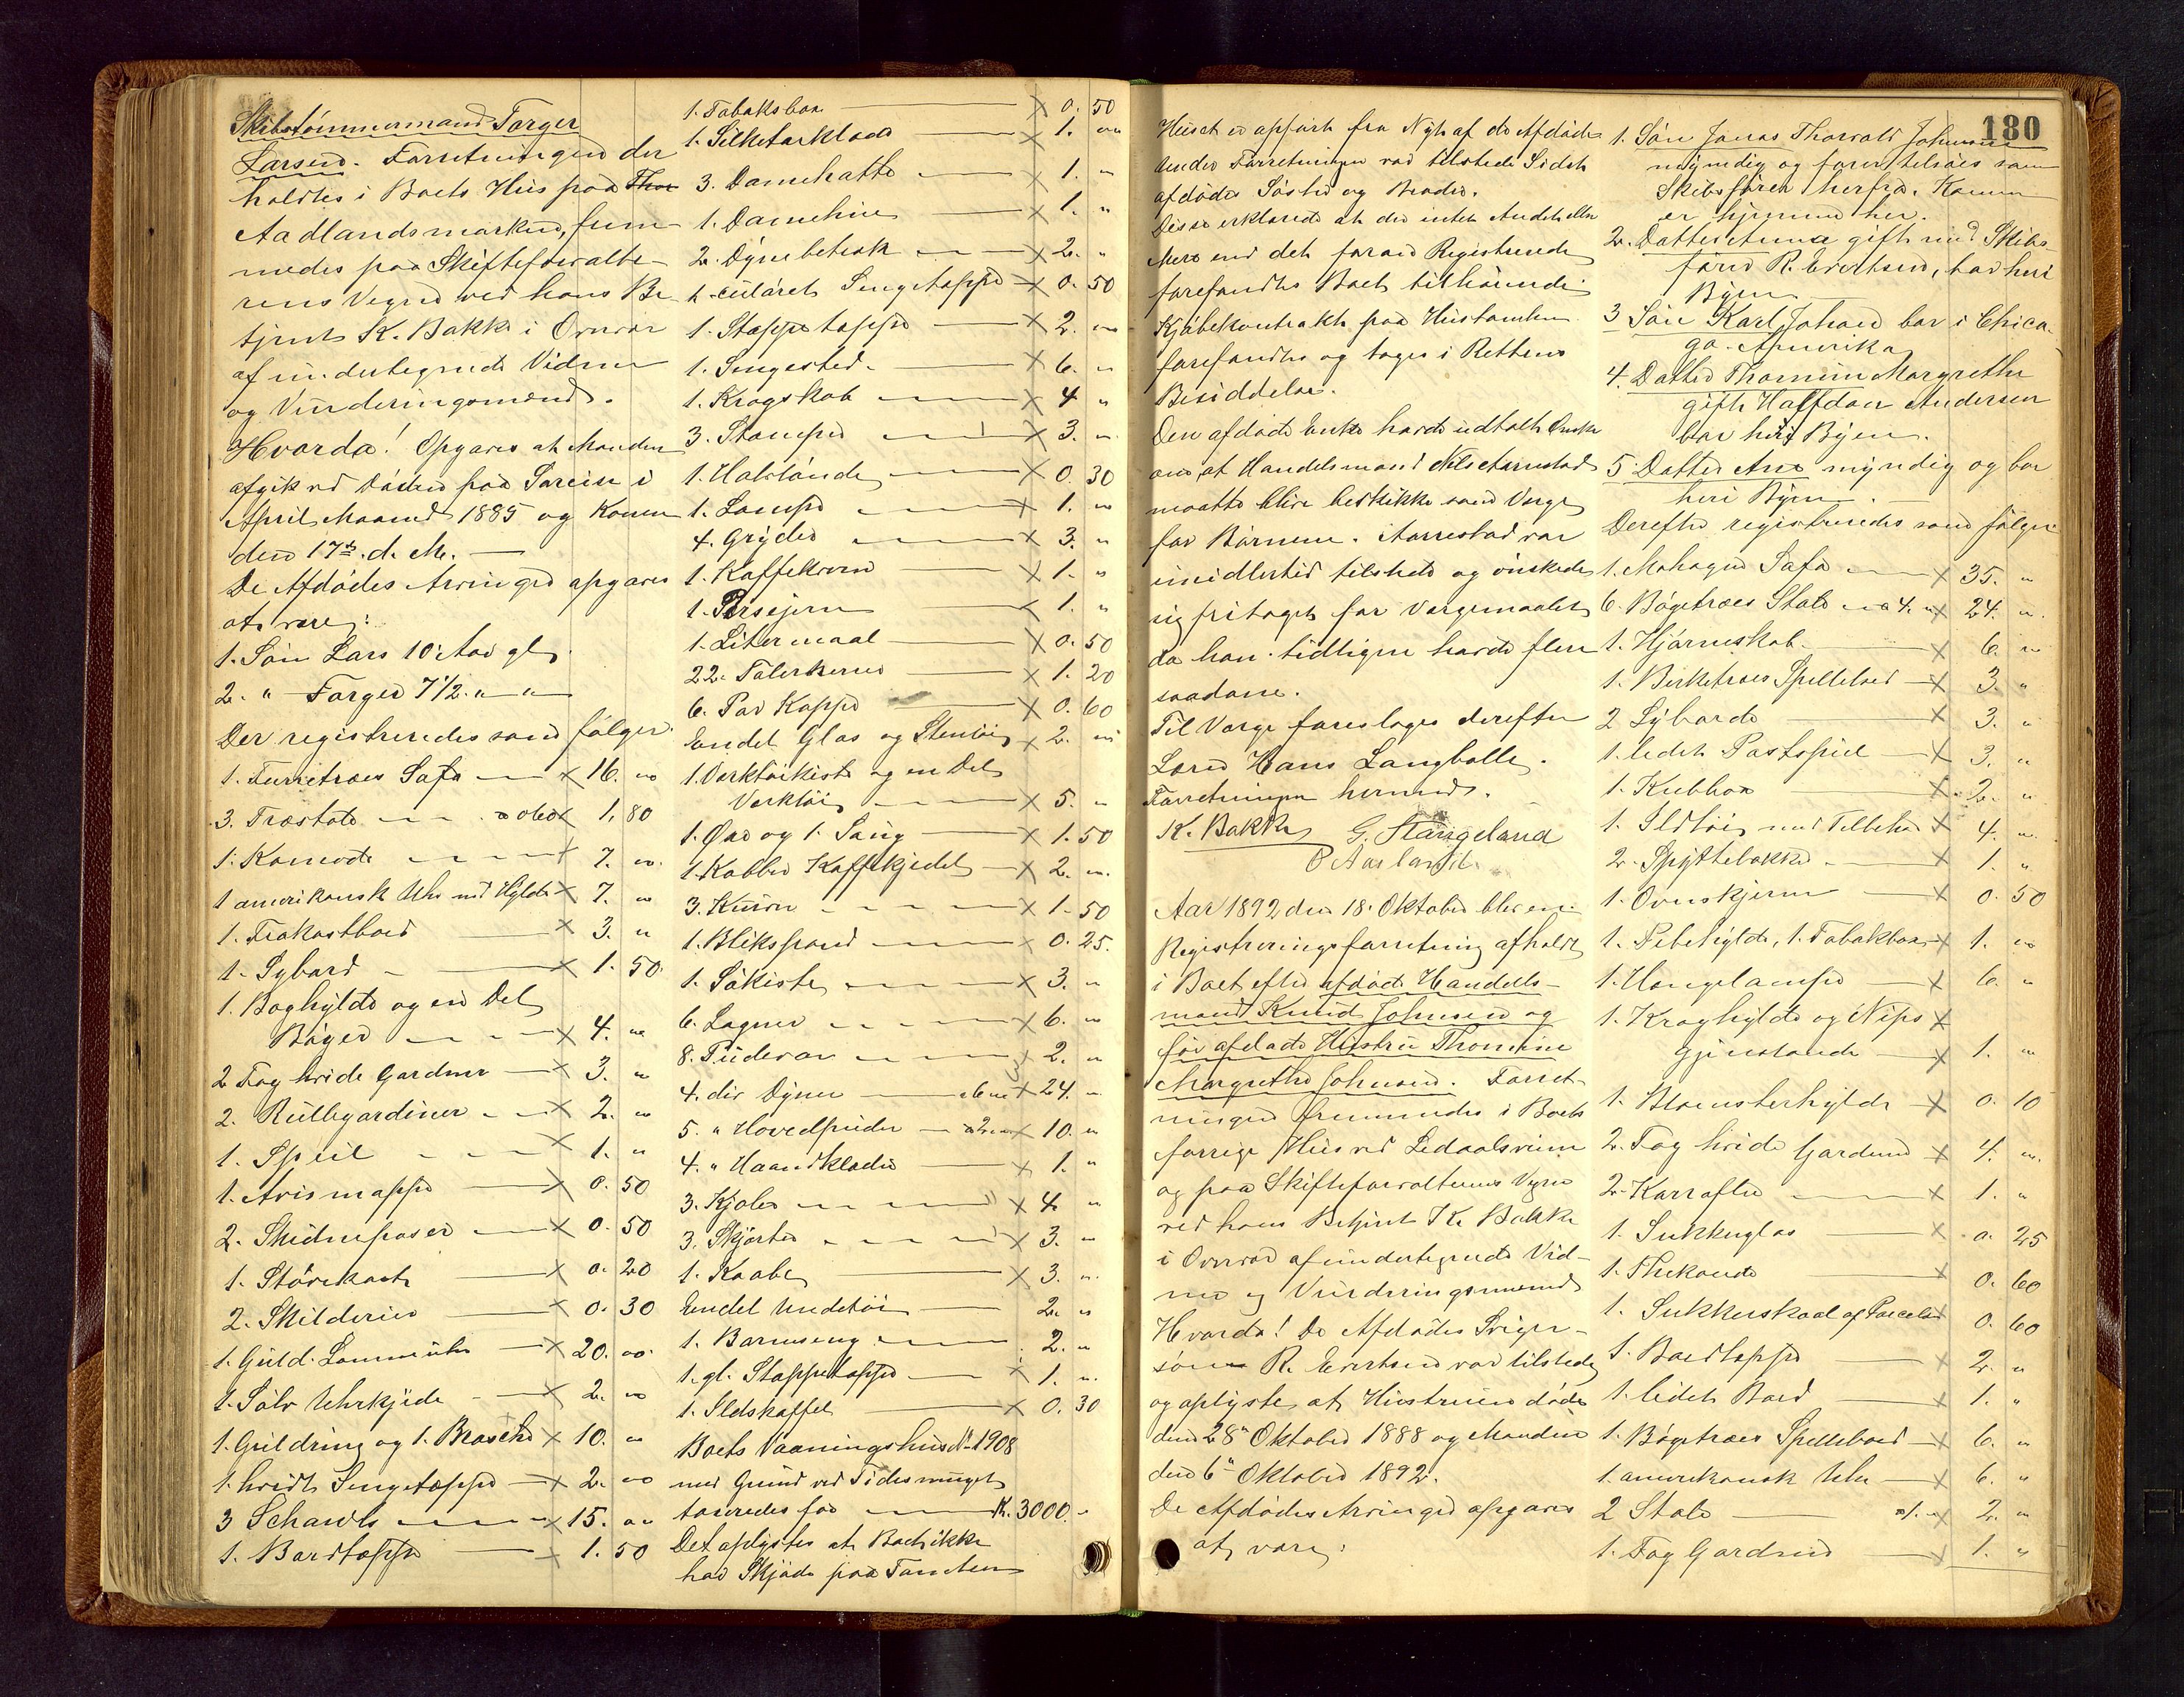 Skibstömmermand Torger
Larsen. Forretningen der
holdtes i Boets Hus paa
Aadlandsmarken, frem-
medes paa Skifteforvalte-
rens Vegne ved hans Be
tjent K. Bakke i Overvær
af undertegnede Vidner
og Vurderingsmænd.
Hvorda! Opgaves at Manden
afgik ved Döden paa Söreise i
April Maaned 1885 og Konen
den 17de d. M.
De Afdödes Arvinger opgaves
at være:
1. Sön Lars 10 Aar gl.
2. " Torger 7 1/2 " "
Der registreredes som fölger.
1. Furretræes Sofa x 16. "
3. Træstole a 0.60 x 1. 80
1. Komode x 7. "
1 amerikansk Uhr med Hylde x 7. "
1. Frokostbord x 3. "
1. Sybord x 1. 50
1. Boghylde og en Del
Böger x 4. "
2 Fag hvide Gardiner x 3. "
2. Rullegardiner x 2. "
1. Speil x 1. "
1. Avismappe x 0. 50
2. Skidneposer x 0. 50
1. Stövekost x 0. 20
2. Skilderier x 0. 30
1. Guld Lommeuhr x 20. "
1. Sölv Uhrkjede x 2. "
1. Guldring og 1. Brosche x 10. "
1. hvidt Sengetæppe x 2. "
3 Schawls x 15. "
1. Bordtæppe x 1. 50
1. Tobaksbox x 0. 50
1. Silketörklæde x 1. "
3. Damehatte x 1. "
1. Damehue x 1. "
2. Dynebetræk x 2. "
1. culöret Sengetæppe x 0. 50
1. Stoppetæppe x 2. "
1. Sengested x 6. "
1. Krogskab x 4 "
3. Stamper x 3. "
1. Halvtönde x 0. 30
1. Lampe x 1. "
4. Gryder x 3. "
1. Kaffekværn x 1. "
1. Persejern x 1. "
1. Litermaal x 0. 50
22. Talerkener x 1. 20
6. Par Kopper x 0. 60
Endel Glas og Stentöi x 2. "
1. Verktöikiste og en Del
Verktöi x 5. "
1. Öxe og 1. Saug x 1. 50
1. Kobber Kaffekjedel x 2. "
3. Knive x 1. 50
1. Blikspand x 0. 25.
1. Sökiste x 3. "
6. Lagner x 6. "
8. Pudevar x 2. "
4. div Dyner a 6 x 24. "
5. " Hovedpuder a 2 x 10. "
4. " Haandklæder x 1. "
3. Kjoler x 4. "
3. Skjörter x 3. "
1. Kaabe x 3. "
Endel Undertöi 2. "
1. Barneseng 2. "
1. gl. Stoppetæppe x 1. "
1. Ildskuffel x 0. 30
Boets Vaaningshus No 1908
med Grund ved Tidesmuget
taxeredes for K. 3000. "
Det oplystes at Boet ikke
har Skjöde paa Tomten
Huset er opfört fra Nyt af de Afdöde
Under Forretningen var tilstede Sidst
afdödes Söster og Broder.
Disse erklærede at der intet Andet eller
Mere end det foran Registrerede
forefandtes Boet tilhörende.
Kjöbekontrakt paa Hustomten
forefandtes og toges i Rettens
Besiddelse.
Den afdöde Enke havde udtalt Önske
om at Handelsmand Nils Aarrestad
maatte blive beskikket som Verge
for Börnene. Aarrestad var
imidlertid tilstede og önskede
sig fritaget for Vergemaalet
da han tidligere havde flere
saadane.
Til Verge foresloges derefter
Lærer Hans Langballe.
Forretningen hermed.
K. Bakke G. Stangeland
O Aarland.
Aar 1892 den 18. Oktober blev en
Registreringsforretning afholdt
i Boet efter afdöde Handels-
mand Knud Johnsen og
för afdöde Hustru Thomine
Margrethe Johnsen. Forret-
ningen fremmedes i Boets
forrige Hus ved Ledaalsveien
og paa Skifteforvalterens Vegne
ved hans Betjent K. Bakke
i Overvær af undertegnede Vid-
ner og Vurderingsmænd
Hvorda! De Afdödes Sviger-
sön R. Evertsen var tilstede
og oplyste, at Hustruen döde
den 28de Oktober 1888 og Manden
den 6te Oktober 1892.
De Afdödes Arvinger opgaves
at være:
180
1. Sön Jonas Thorvald Johnsen
myndig og farer tilsöes som
Skibsförer herfra. Konen
er hjemme her.
2. Datter Anna gift med Skibs
förer R. Evertsen, bor heri
Byen
3 Sön Karl Johan bor i Chica
go. Amerika
4. Datter Thomine Margrethe
gift Halfdan Andersen
bor heri Byen.
5. Datter Ane myndig og bor
heri Byen.
Derefter registreredes som fölger
1. Mahogni Sofa x 35. "
6. Bögetræes Stole a 4. " x 24. "
1. Hjörneskab x 6. "
1. Birketræes Spillebord x 3. "
2 Syborde x 3. "
1. lidet Postspeil x 3. "
1. Kubbox x 2. "
1. Ildtöi med Tilbehör x 4. "
2. Spyttebakker x 1. "
1. Ovnskjerm x 0. 50
1. Pibehylde, 1. Tobakbox x 1. "
1. Hængelampe x 6. "
1. Kroghylde og Nips x
gjenstande x 1. "
1. Blomsterhylde x 0. 10
2. Fag hvide Gardiner x 4. "
2. Karrafler x 1. "
1. Sukkerglas x 0. 25
1. Thekande x 0. 60
1. Sukkerskaal af Porcelæn 0. 60
1. Bordtæppe x 2. "
1. lidet Bord x 1. "
1. Bögetræes Spillebord x 6. "
1. amerikansk Uhr x 6. "
2 Stole a 1. " x 2. "
1. Fag Gardiner x 1. "